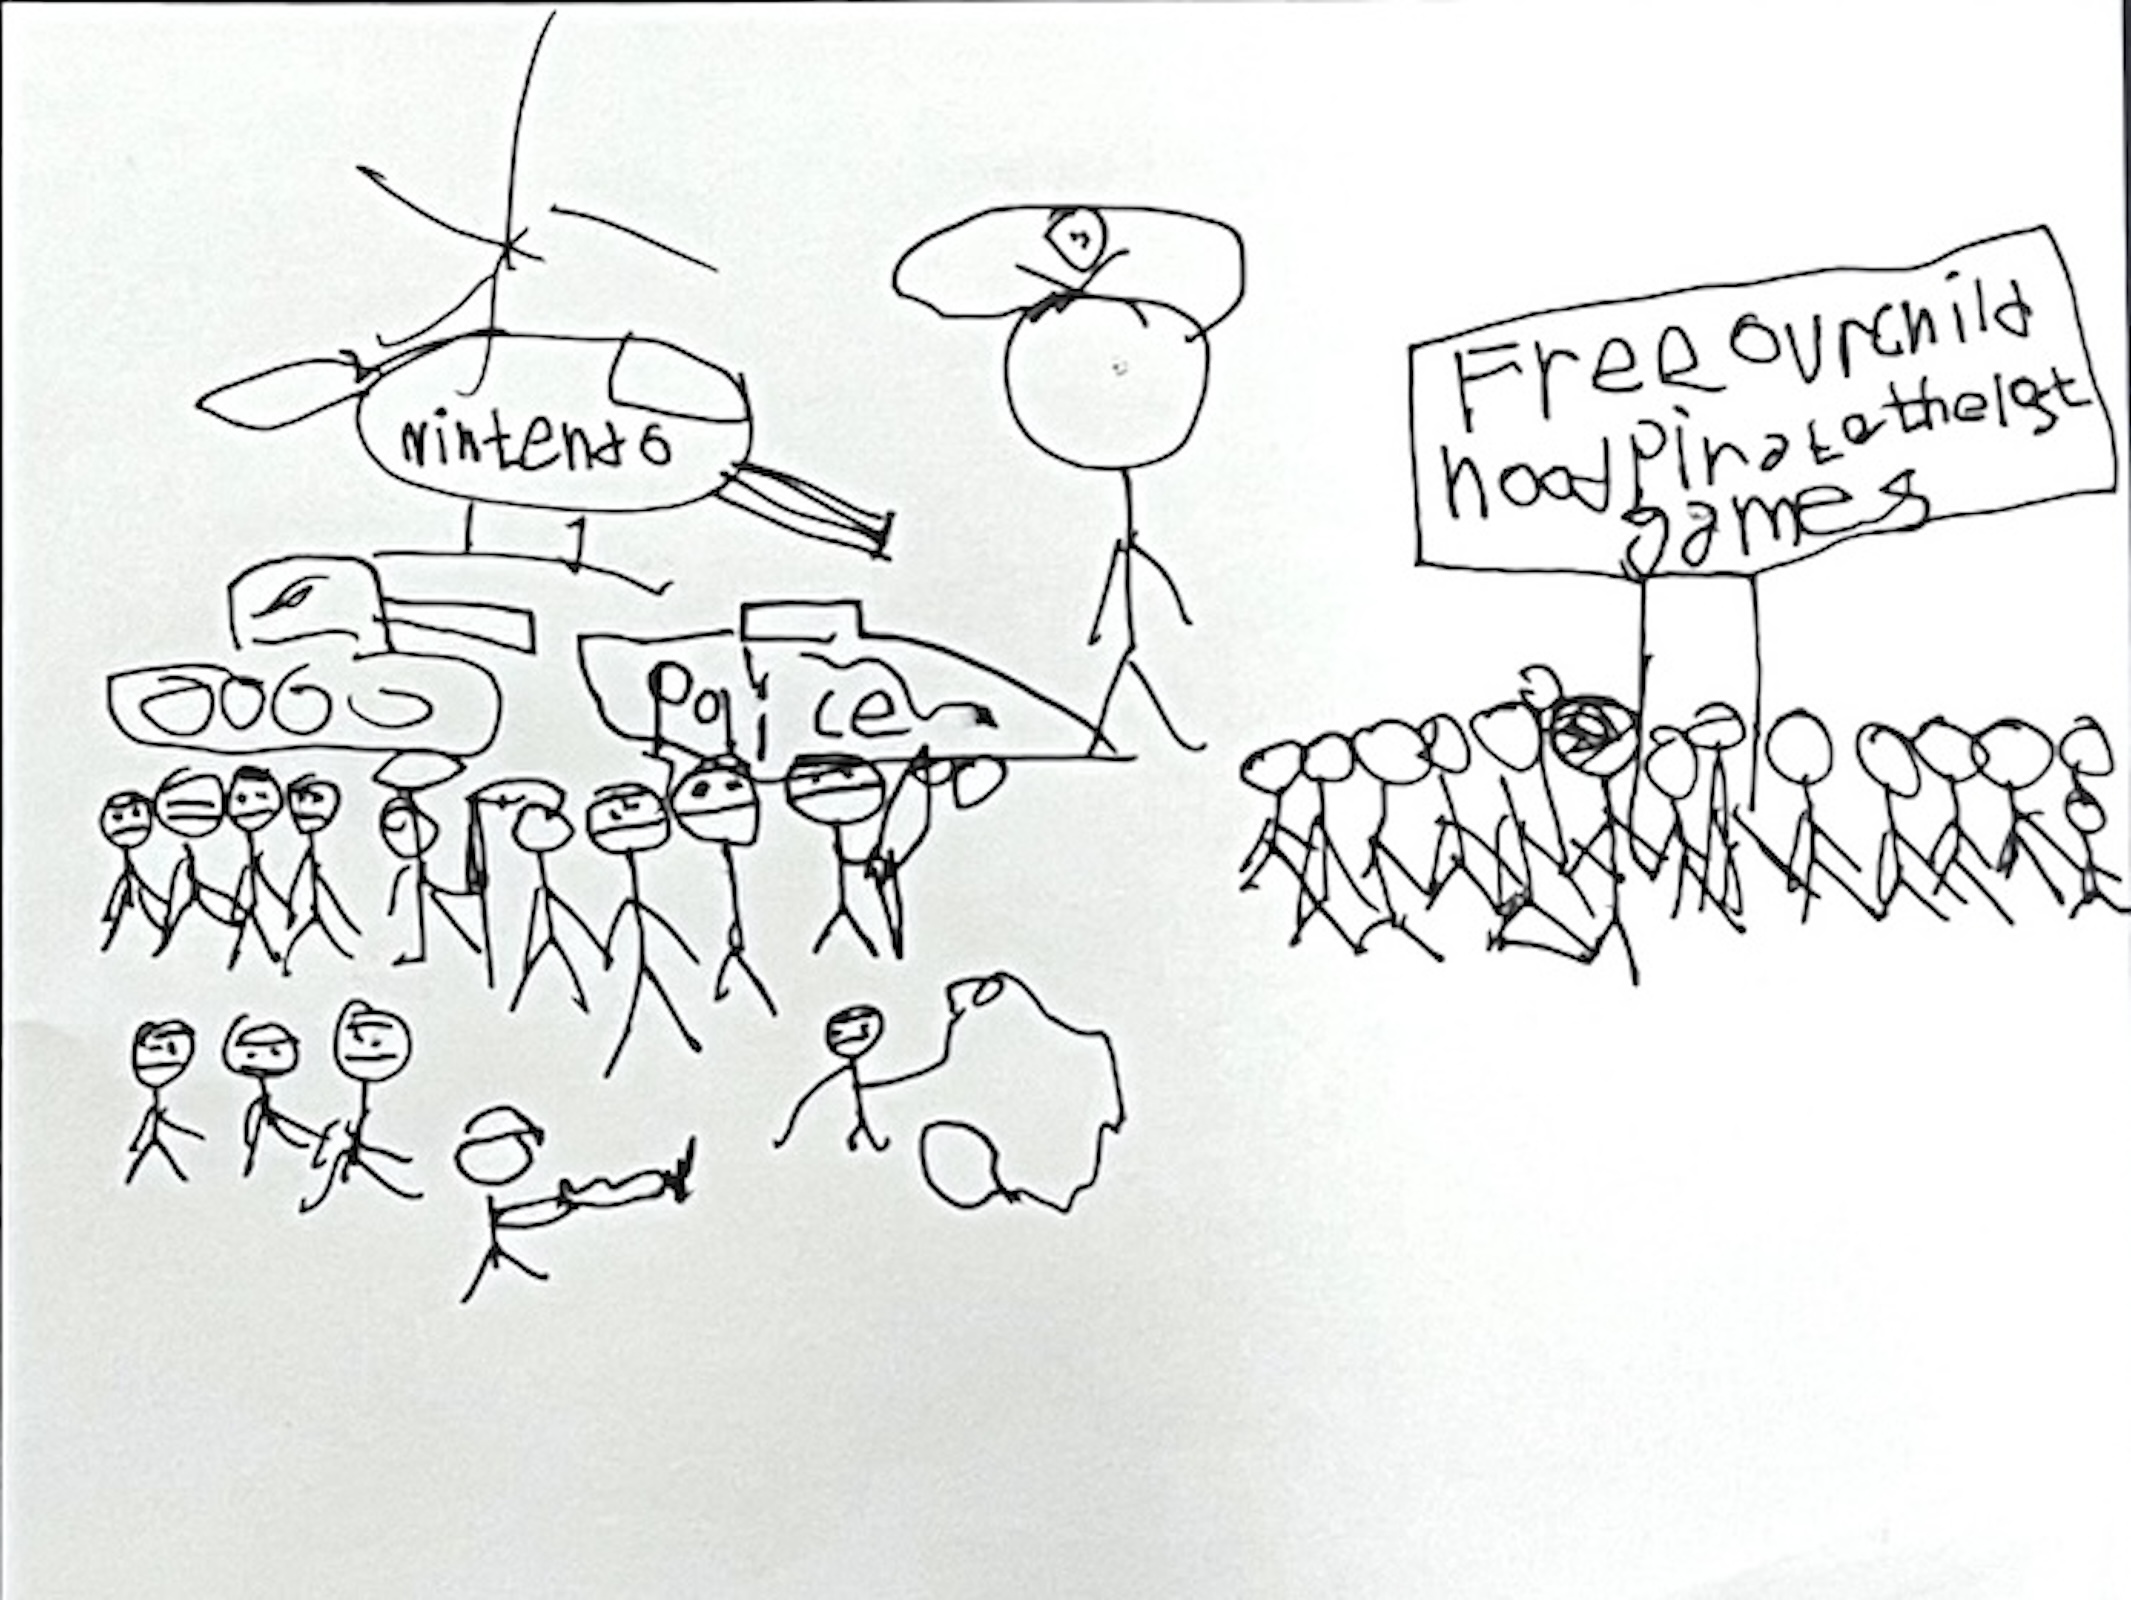 nintendo
Police
Free our child
hood pirate the lost
games